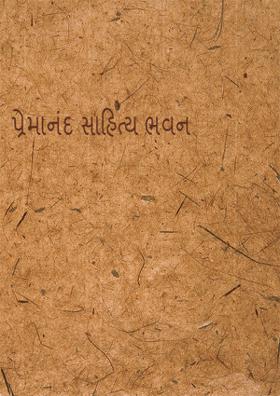 પ્રેમાનંદ સાહિત્ય ભવન